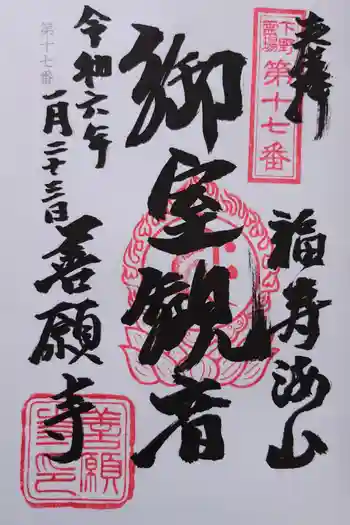 奉拝
下野霊場
第十七番
福寿海山
御室観音
令和六年
一月二十三日
善願寺
第十七番
善願寺印